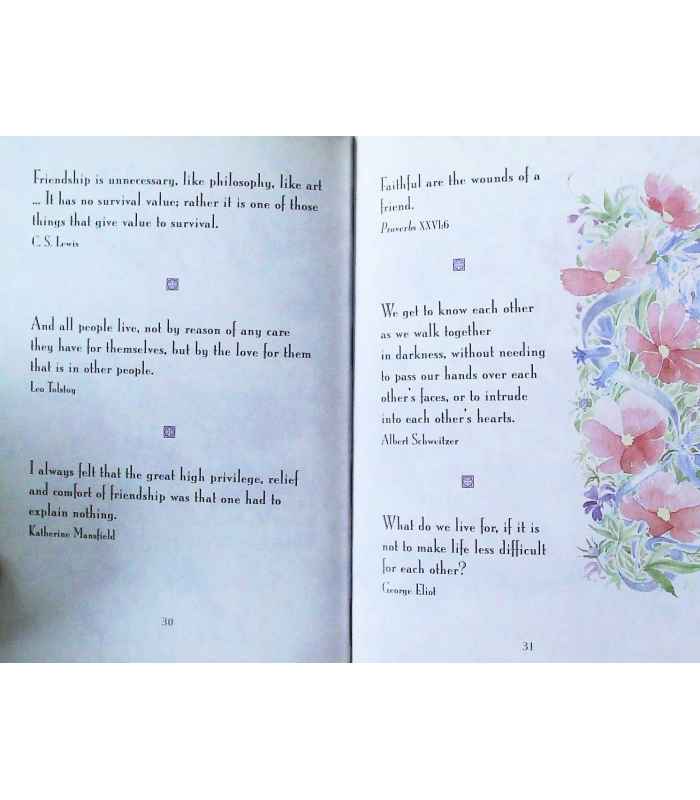 Friendship is unnecessary, like philosophy, like art
... It has no survival value; rather it is one of those
things that give value to survival.
C. S. Lewis
And all people live, not by reason of any care
they have for themselves, but by the love for them
that is in other people.
Leo Tolstoy
I always felt that the great high privilege, relief
and comfort of friendship was that one had to
explain nothing.
Katherine Mansfield
30
Faithful are the wounds of a
friend.
Proverbs XXVI:6
We get to know each other
as we walk together
in darkness, without needing
to pass our hands over each
other's faces, or to intrude
into each other's hearts.
Albert Schweitzer
What do we live for, if it is
not to make life less difficult
for each other?
George Eliot
31